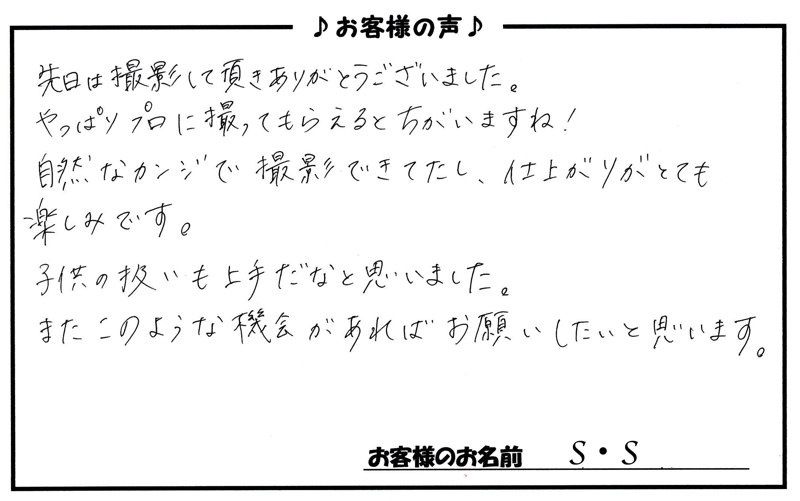 ♪お客様の声♪
先日は撮影して頂きありがとうございました。
やっぱりプロに撮ってもらえるとちがいますね!
自然なカンジで撮影できてたし、仕上がりがとても
楽しみです。
子供の扱いも上手だなと思いました。
またこのような機会があればお願いしたいと思います。
お客様のお名前 S・S